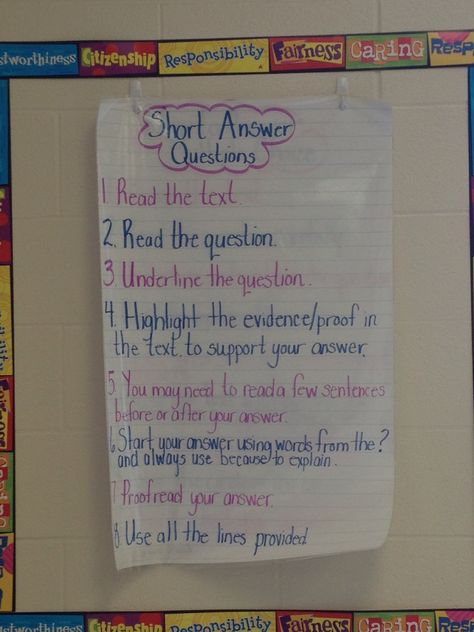 stworthiness Citizenship Responsibility Fairness Caring Respo
Short Answer
Questions
1. Read the text.
2. Read the question.
3. Underline the question.
4. Highlight the evidence/proof in
the text to support your answer.
5 You may need to read a few sentences
before or after your answer.
6. Start your answer using words from the ?
and always use because to explain.
7 Proofread your answer.
8 Use all the lines provided
stworthiness Citizenship Responsibility Fairness Caring Resp